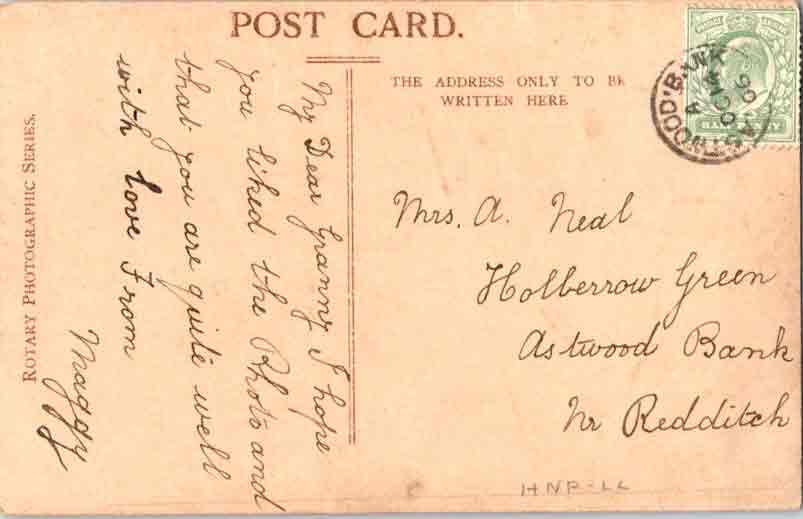 POST CARD.
THE ADDRESS ONLY TO BE
WRITTEN HERE
ROTARY PHOTOGRAPHIC SERIES.
My Dear Granny I hope
you liked the Photo and
that you are quite well
with love From
Maggy
Mrs. A. Neal
Holberrow Green
Astwood Bank
Nr Redditch
ASTWOOD BANK
06
HNP-LL